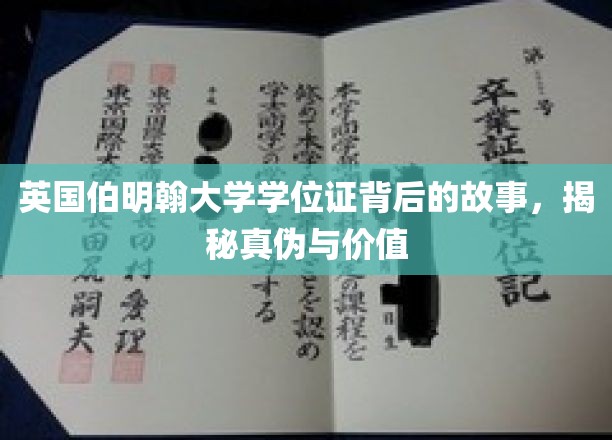 英国伯明翰大学学位证背后的故事，揭
秘真伪与价值
第 号
卒業証 学位記
日生
本学商学部 定の課程を
修めて本学 ことを認め
学士(商学)の する
平成
東京国際大学 田村愛理
東京国際大 長田尻嗣夫